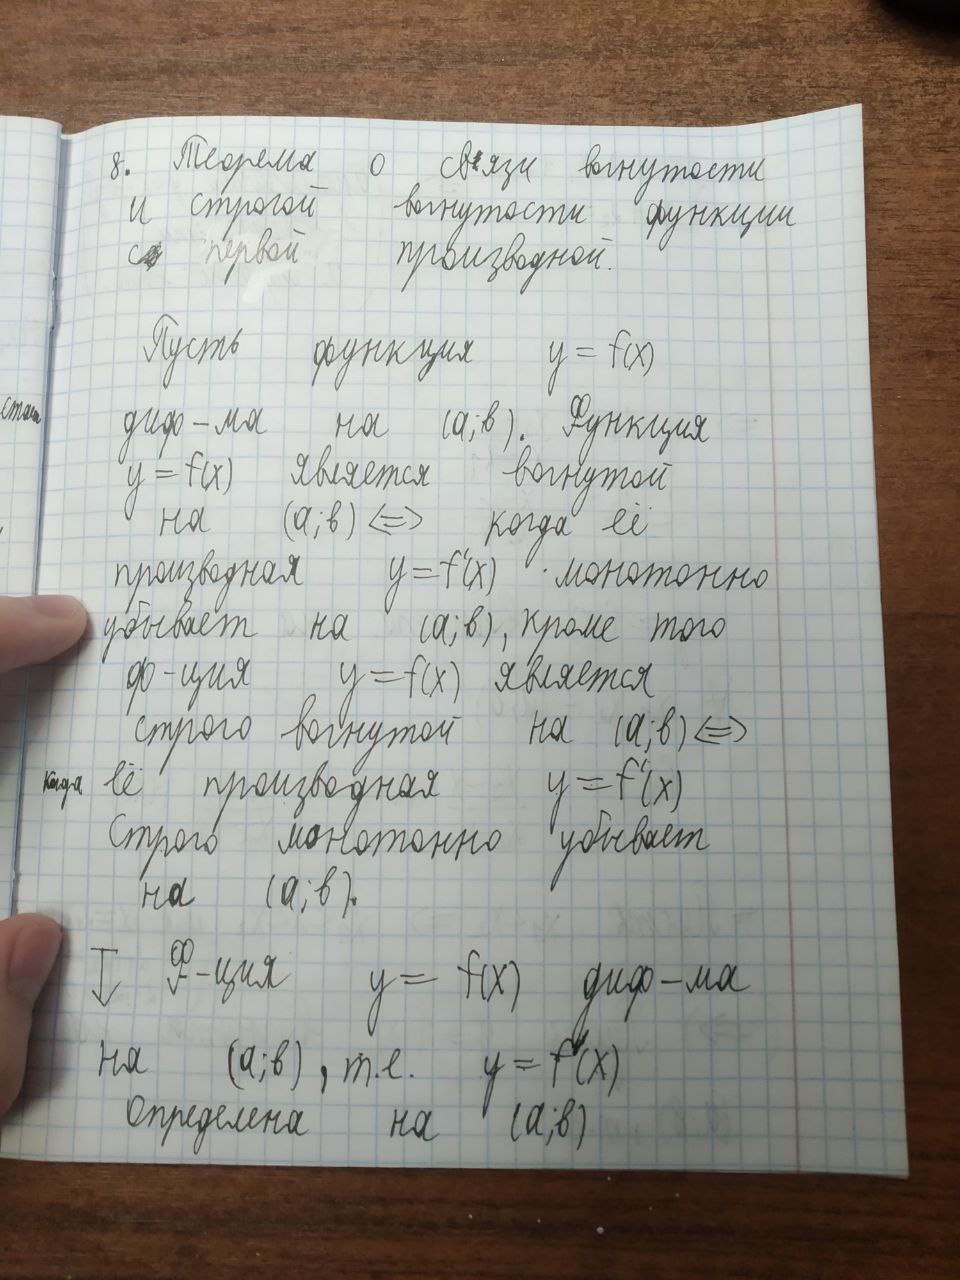 8. Теорема о связи вогнутости
и строгой вогнутости функции
с первой производной.
Пусть функция y = f(x)
диф-ма на (a;b). Функция
y = f(x) является вогнутой
на (a;b) <=> когда её
производная y = f'(x) монотонно
убывает на (a;b), кроме того
ф-ция y = f(x) является
строго вогнутой на (a;b) <=>
когда её производная y = f'(x)
Строго монотонно убывает
на (a;b).
Ф-ция y = f(x) диф-ма
на (a;b), т.е. y = f'(x)
Определена на (a;b)